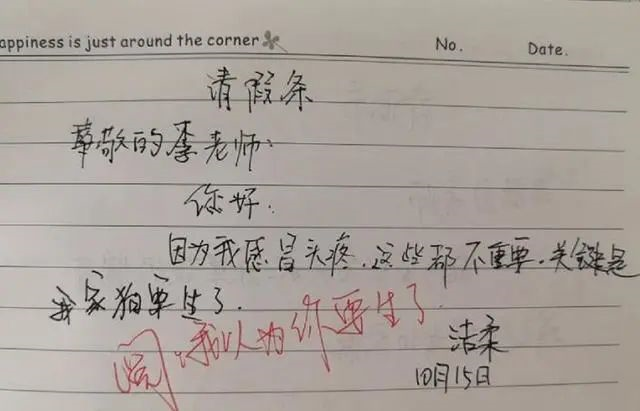 appiness is just around the corner No. Date.
请假条
尊敬的李老师：
你好．
因为我感冒头疼．这些都不重要．关键是
我家狗要生了．
阅．我以为你要生了
洁柔
10月15日